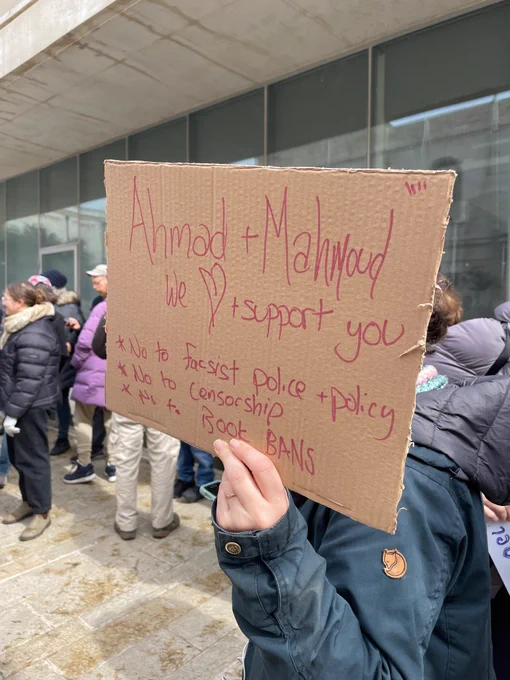 Ahmad + Mahmoud
We ♡ + support you
* No to facsist police + policy
* No to censorship
* No to Book BANS